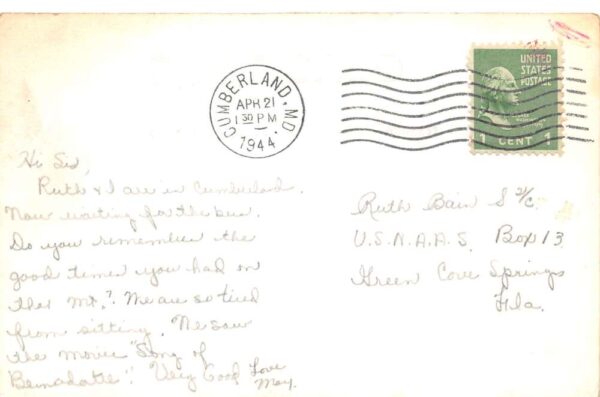 CUMBERLAND, MD.
APR 21
1 30 PM
1944
UNITED
STATES
POSTAGE
1 CENT 1
Hi Sis,
Ruth & I are in Cumberland.
Now waiting for the bus.
Do you remember the
good times you had on
that Mt.? We are so tired
from sitting. We saw
the movie "Song of
Bernadette". Very Good
Love
May.
Ruth Bain S 2/C.
U.S.N.A.A.S. Box 13
Green Cove Springs
Fla.